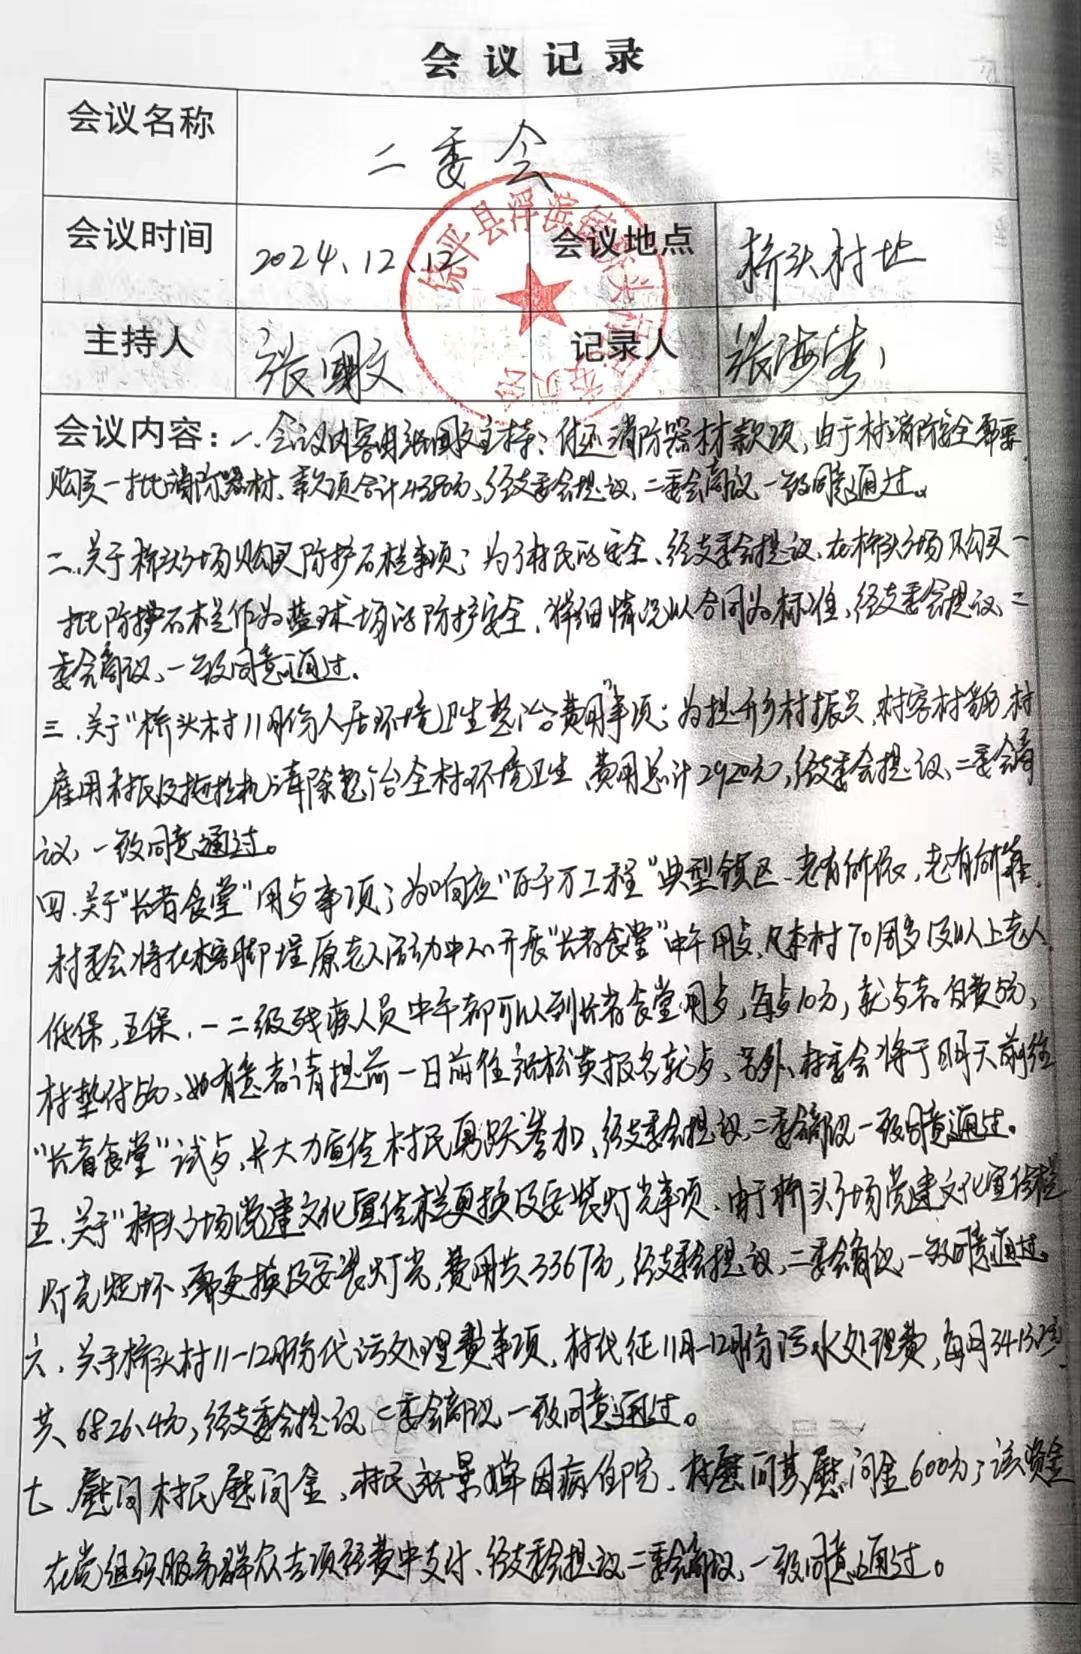 会议记录
会议名称 二委会
会议时间 2024、12、12 会议地点 桥头村址
主持人 张国文 记录人 张海
饶平县浮滨镇桥头村村民委员会
会议内容：一、会议内容由张国文主持：付还消防器材款项，由于村消防安全需要，
购买一批消防器材、款项合计4380元，经支委会提议、二委会商议、一致同意通过。
二、关于桥头广场购买防护石栏事项；为了村民的安全、经支委会提议、在桥头广场购买一
批防护石栏作为蓝球场的防护安全、详细情况以合同为标准，经支委会提议、二
委会商议、一致同意通过。
三、关于"桥头村11月份人居环境卫生整治费用"事项；为提升乡村振兴、村容村貌，村
雇用村民及拖拉机清除整治全村环境卫生、费用总计2920元，经支委会提议、二委会商
议，一致同意通过。
四、关于"长者食堂"用歺事项；为响应"百千万工程"典型镇区、老有所依，老有所靠，
村委会将在榕脚埕原老人活动中心开展"长者食堂"中午用歺，凡本村70周岁及以上老人、
低保，五保、一二级残疾人员中午都可以到长者食堂用歺，每歺10元，就歺者自费5元，
村垫付5元、如有意者请提前一日前往张松英报名就歺、另外、村委会将于明天前往
"长者食堂"试歺，并大力宣传村民踊跃参加、经支委会提议、二委会商议一致同意通过。
五、关于"桥头广场党建文化宣传栏更换及安装灯光事项、由于桥头广场党建文化宣传栏
灯光短坏、需更换及安装灯光，费用共3367元，经支委会提议、二委会商议、一致同意通过。
六、关于桥头村11-12月份代污处理费事项，村代征11月-12月份污水处理费，每月3413.2元，
共6826.4元，经支委会提议、二委会商议一致同意通过。
七、慰问村民慰问金、村民张景婵因病住院、村慰问其慰问金600元；该资金
在党组织服务群众专项经费中支付、经支委会提议二委会商议、一致同意通过。